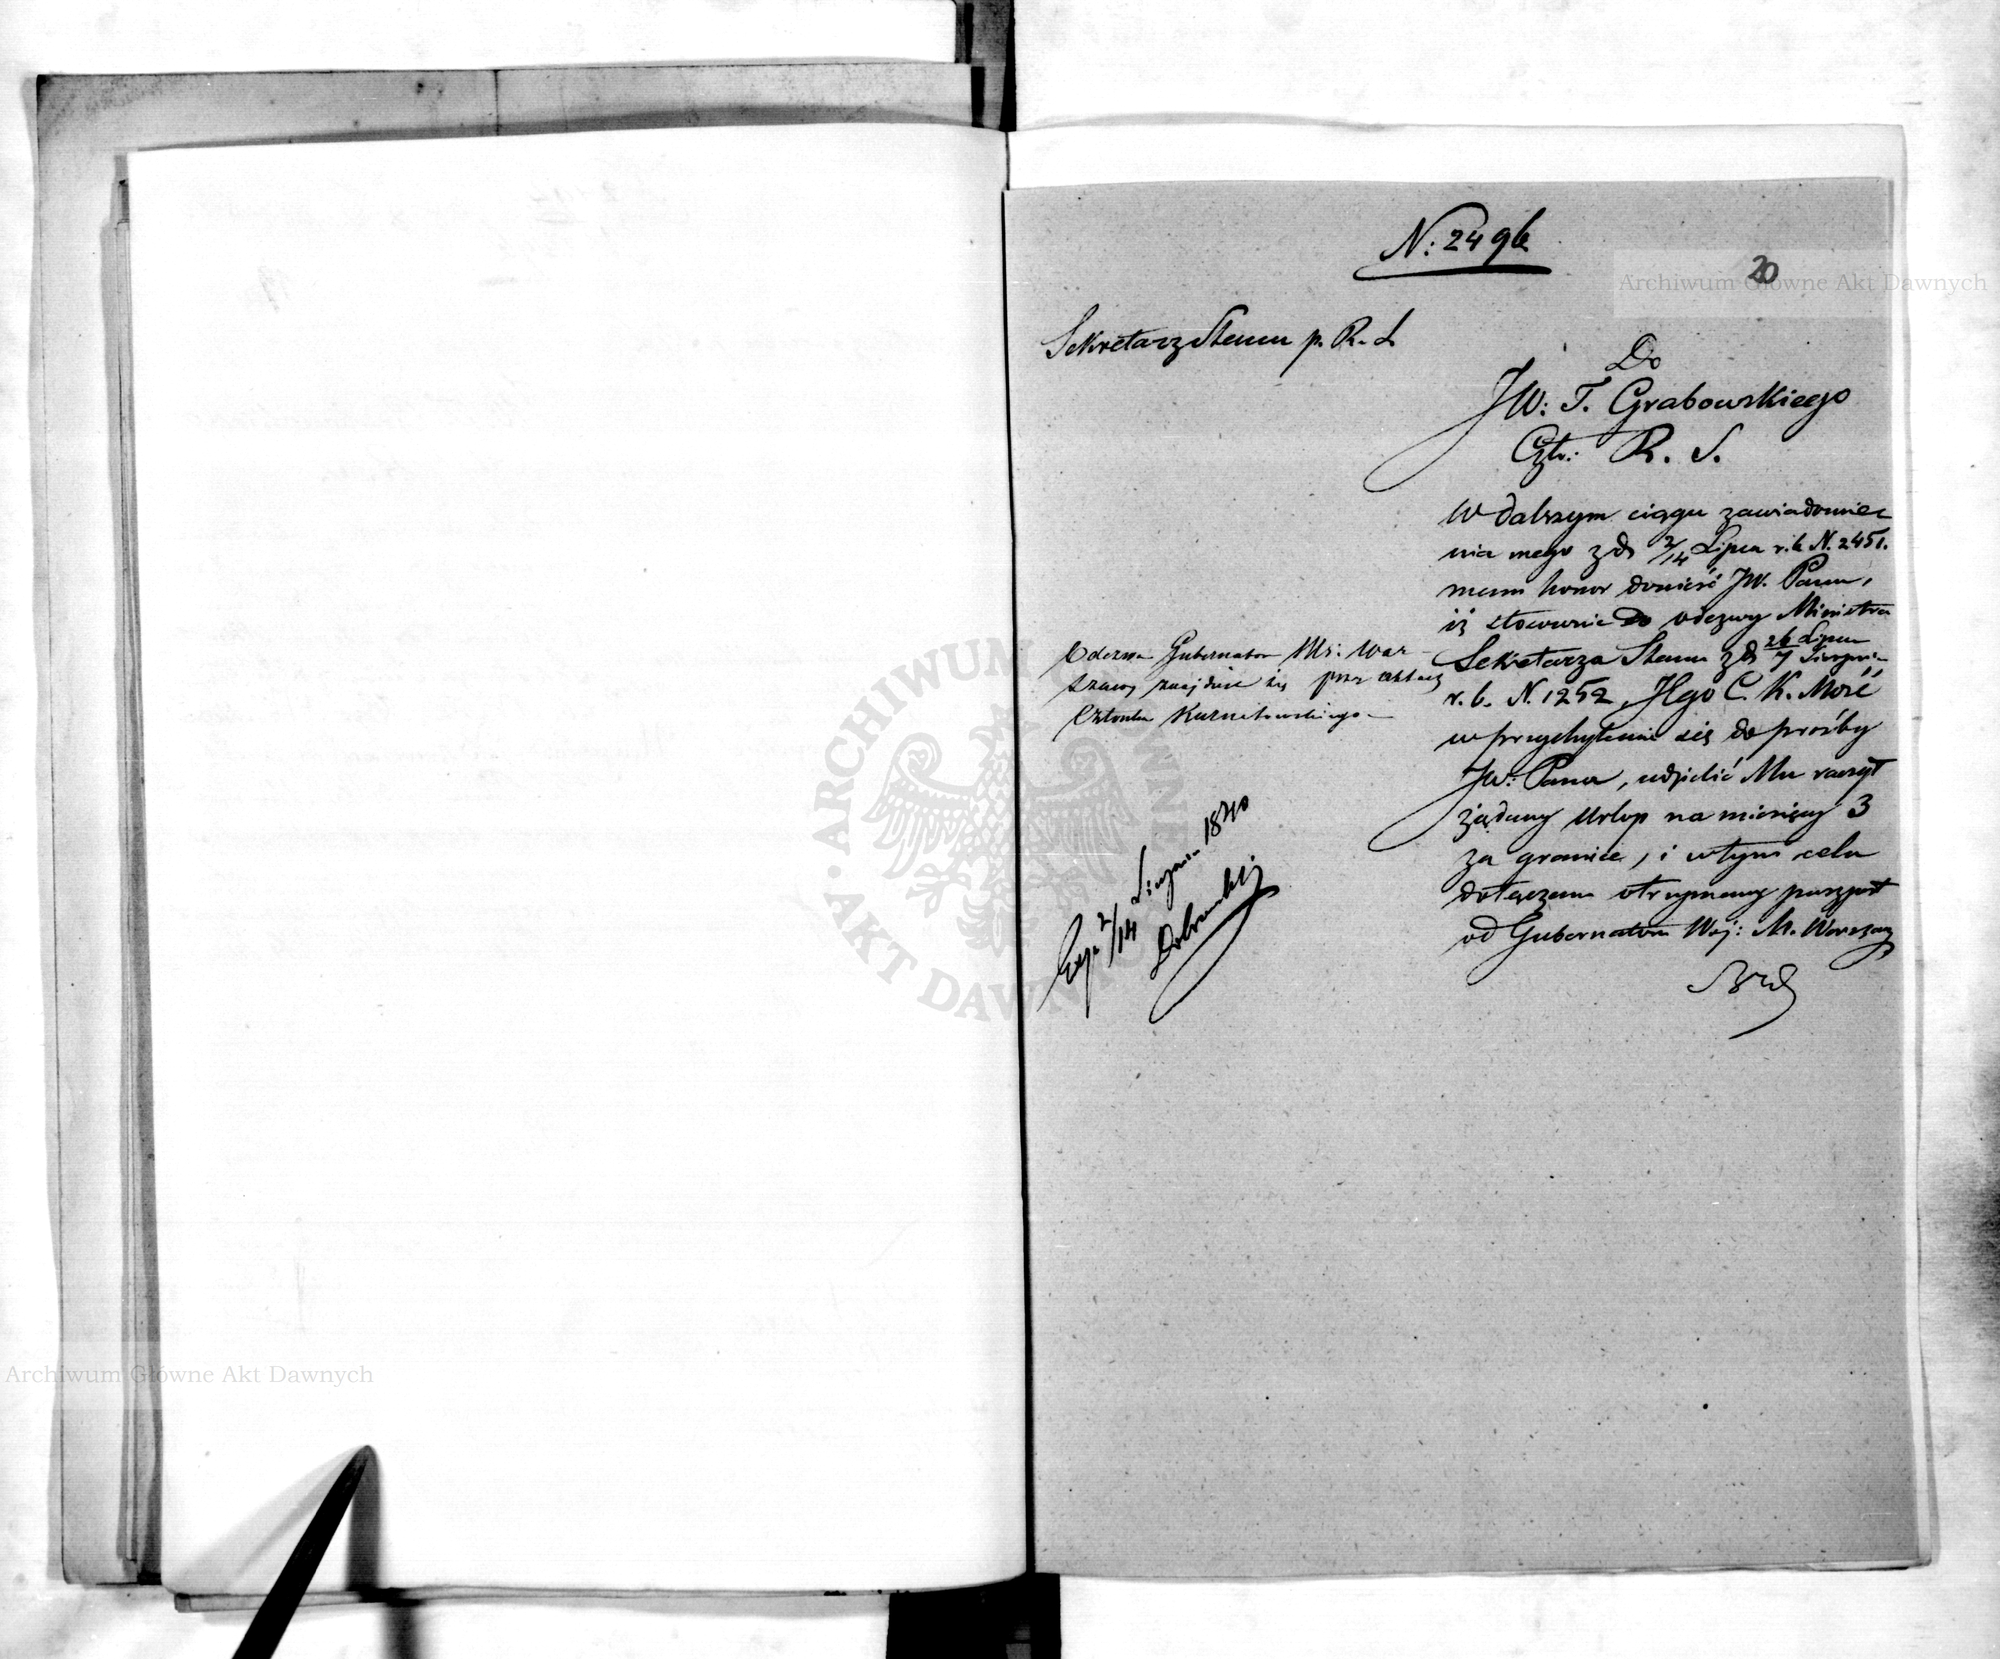 N: 2496
20
Sekretarz Stanu p. R. S.
Do
JW: T. Grabowskiego
Czł: R. S.
W dalszym ciągu zawiadomie
nia mego z d. 2/14 Lipca r. b. N. 2451.
mam honor donieść JW. Panu,
iż stosownie do odezwy Ministra
Sekretarza Stanu z d. 26 Lipca / 7 Sierpnia
r. b. N. 1252, Jego C. K. Mość
w przychyleniu się do prośby
JW: Pana, udzielić Mu raczył
żądany Urlop na miesięcy 3
za granicę, i w tym celu
dołączam otrzymany paszport
od Gubernatora Woj: M. Warszawy
Odezwa Gubernatora Ms: War-
szawy znajduje się przy aktach
Członka Kuznetowskiego
Exp. 2/14 Sierpnia 1840
ARCHIWUM GŁÓWNE AKT DAWNYCH
Archiwum Główne Akt Dawnych
Archiwum Główne Akt Dawnych